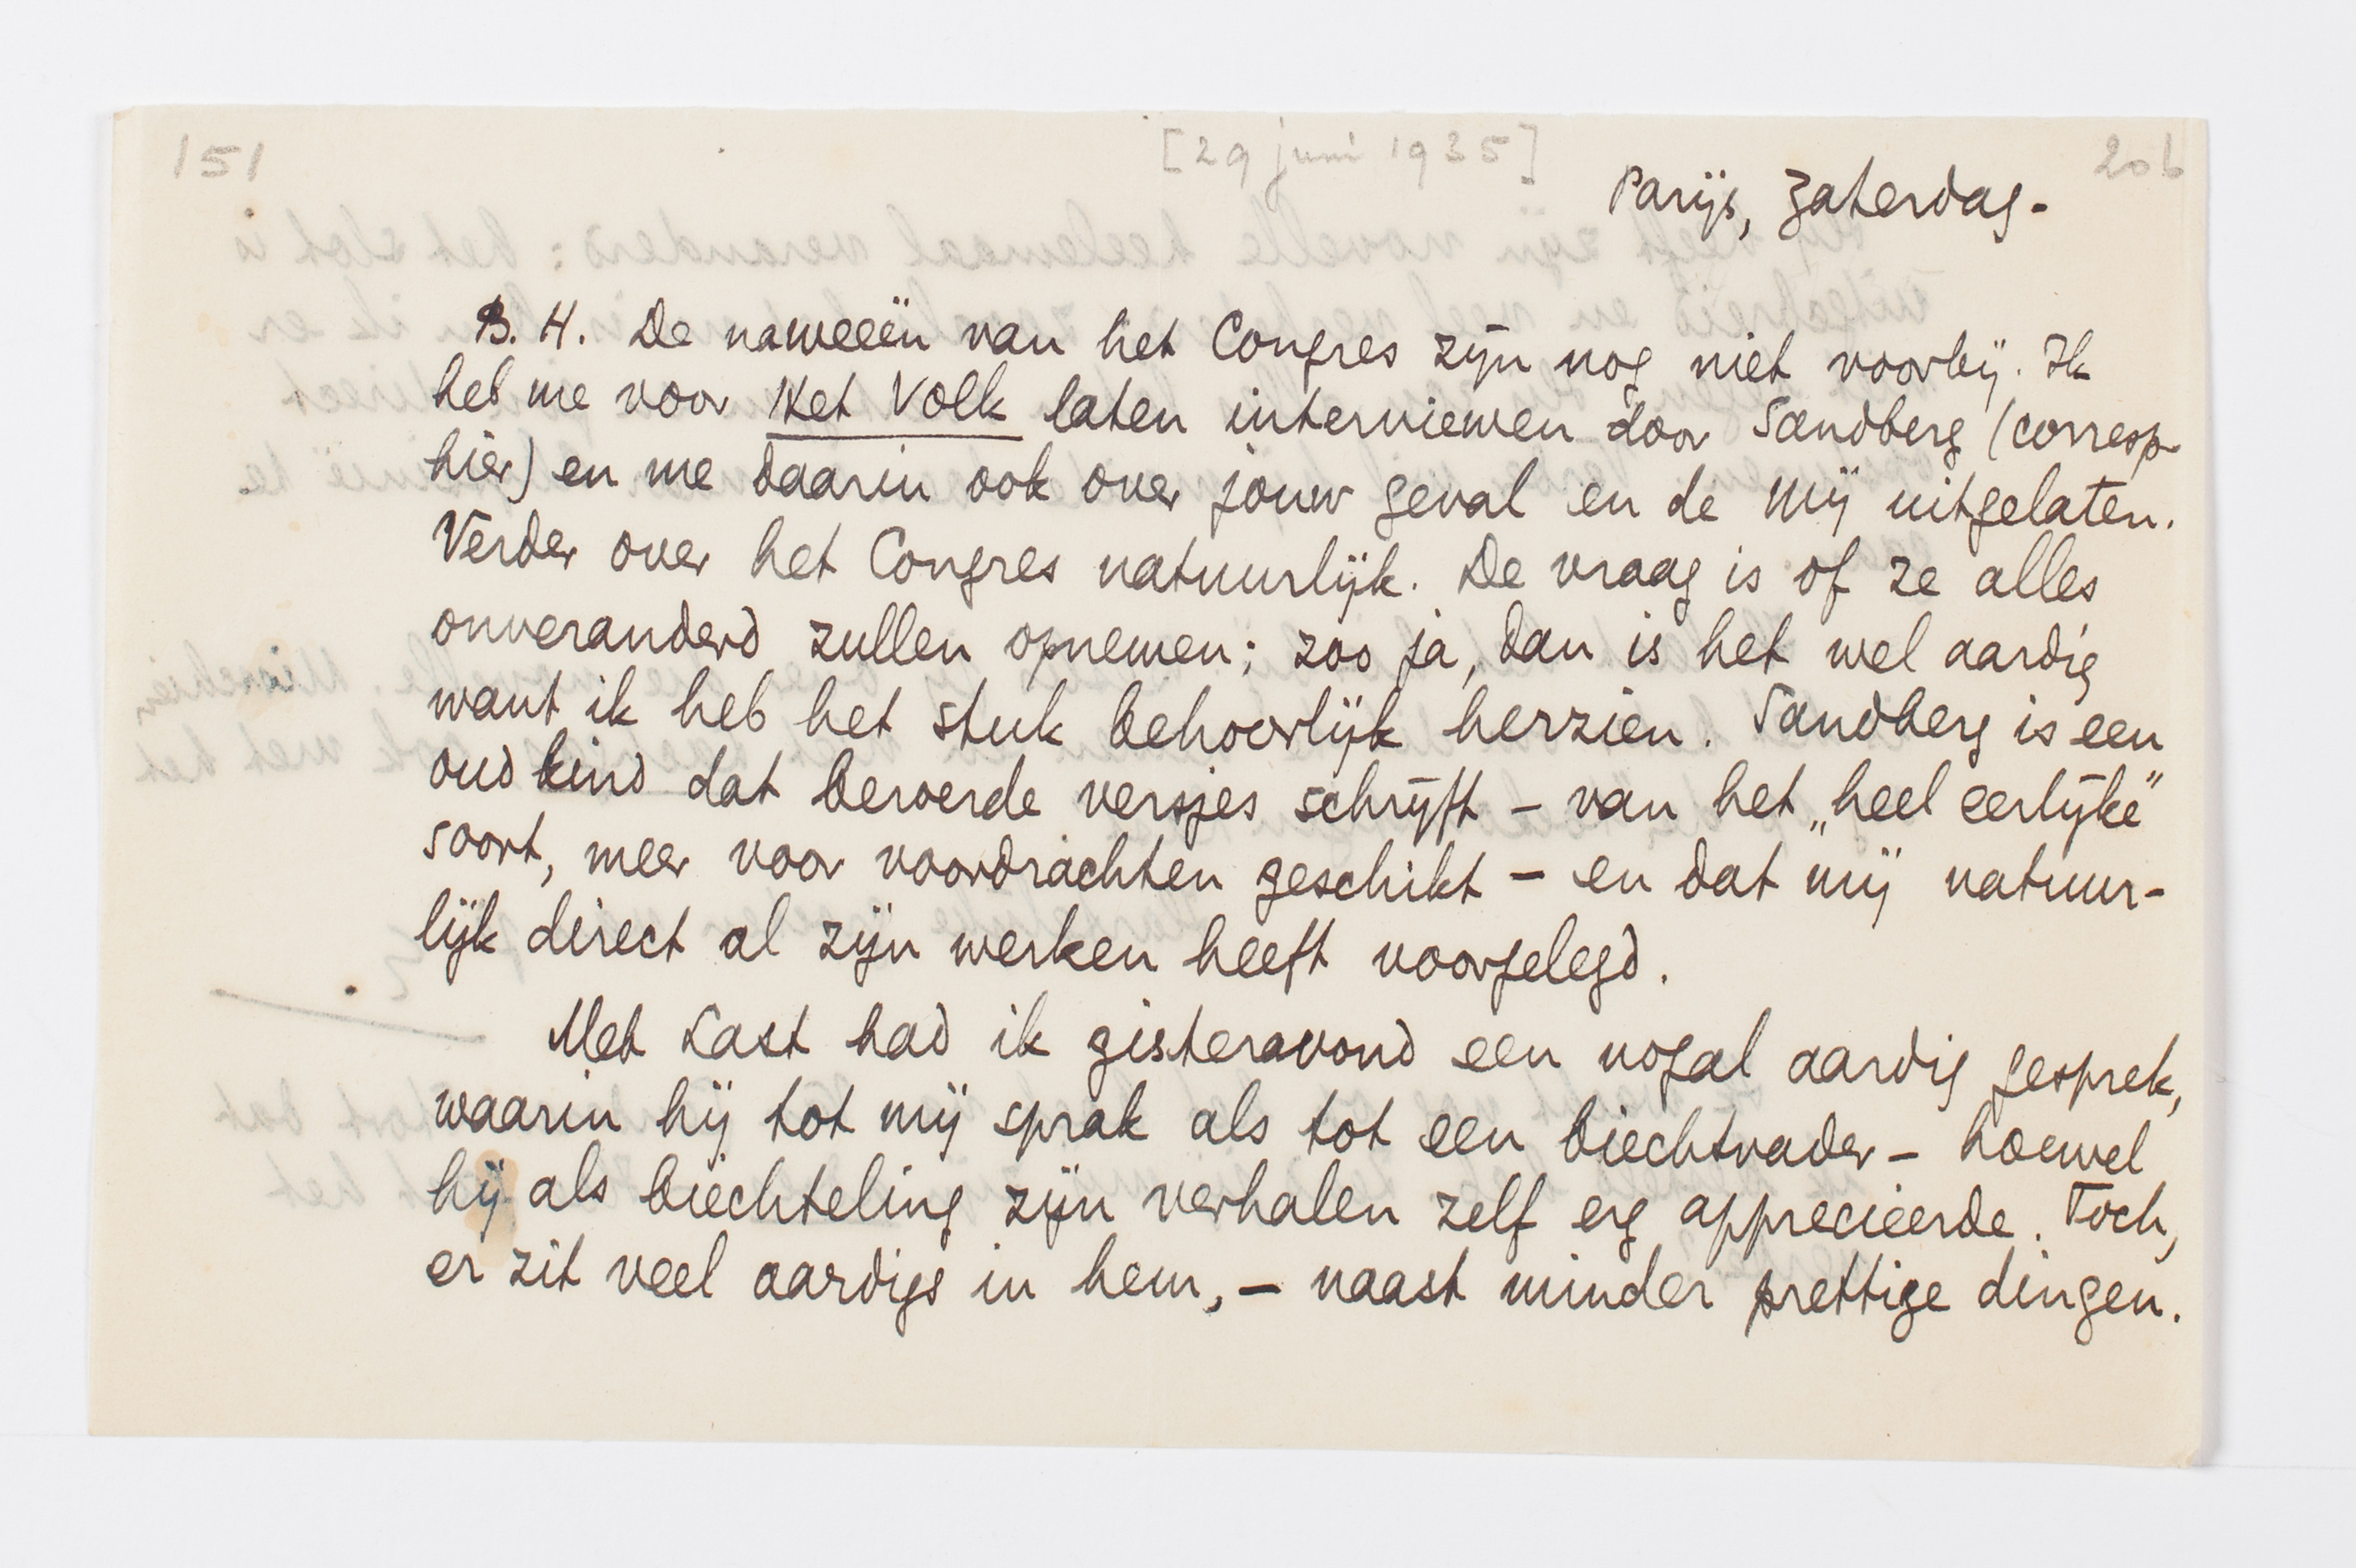 151
[29 juni 1935]
206
Parijs, Zaterdag.
B. H. De naweeën van het Congres zijn nog niet voorbij. Ik
heb me voor Het Volk laten interviewen door Sandberg (corresp.
hier) en me daarin ook over jouw geval en de Mij uitgelaten.
Verder over het Congres natuurlijk. De vraag is of ze alles
onveranderd zullen opnemen; zoo ja, dan is het wel aardig
want ik heb het stuk behoorlijk herzien. Sandberg is een
oud kind dat beroerde versjes schrijft – van het „heel eerlijke”
soort, meer voor voordrachten geschikt – en dat mij natuur-
lijk direct al zijn werken heeft voorgelegd.
Met Last had ik gisteravond een nogal aardig gesprek,
waarin hij tot mij sprak als tot een biechtvader – hoewel
hij als biechteling zijn verhalen zelf erg apprecieerde. Toch,
er zit veel aardigs in hem, – naast minder prettige dingen.